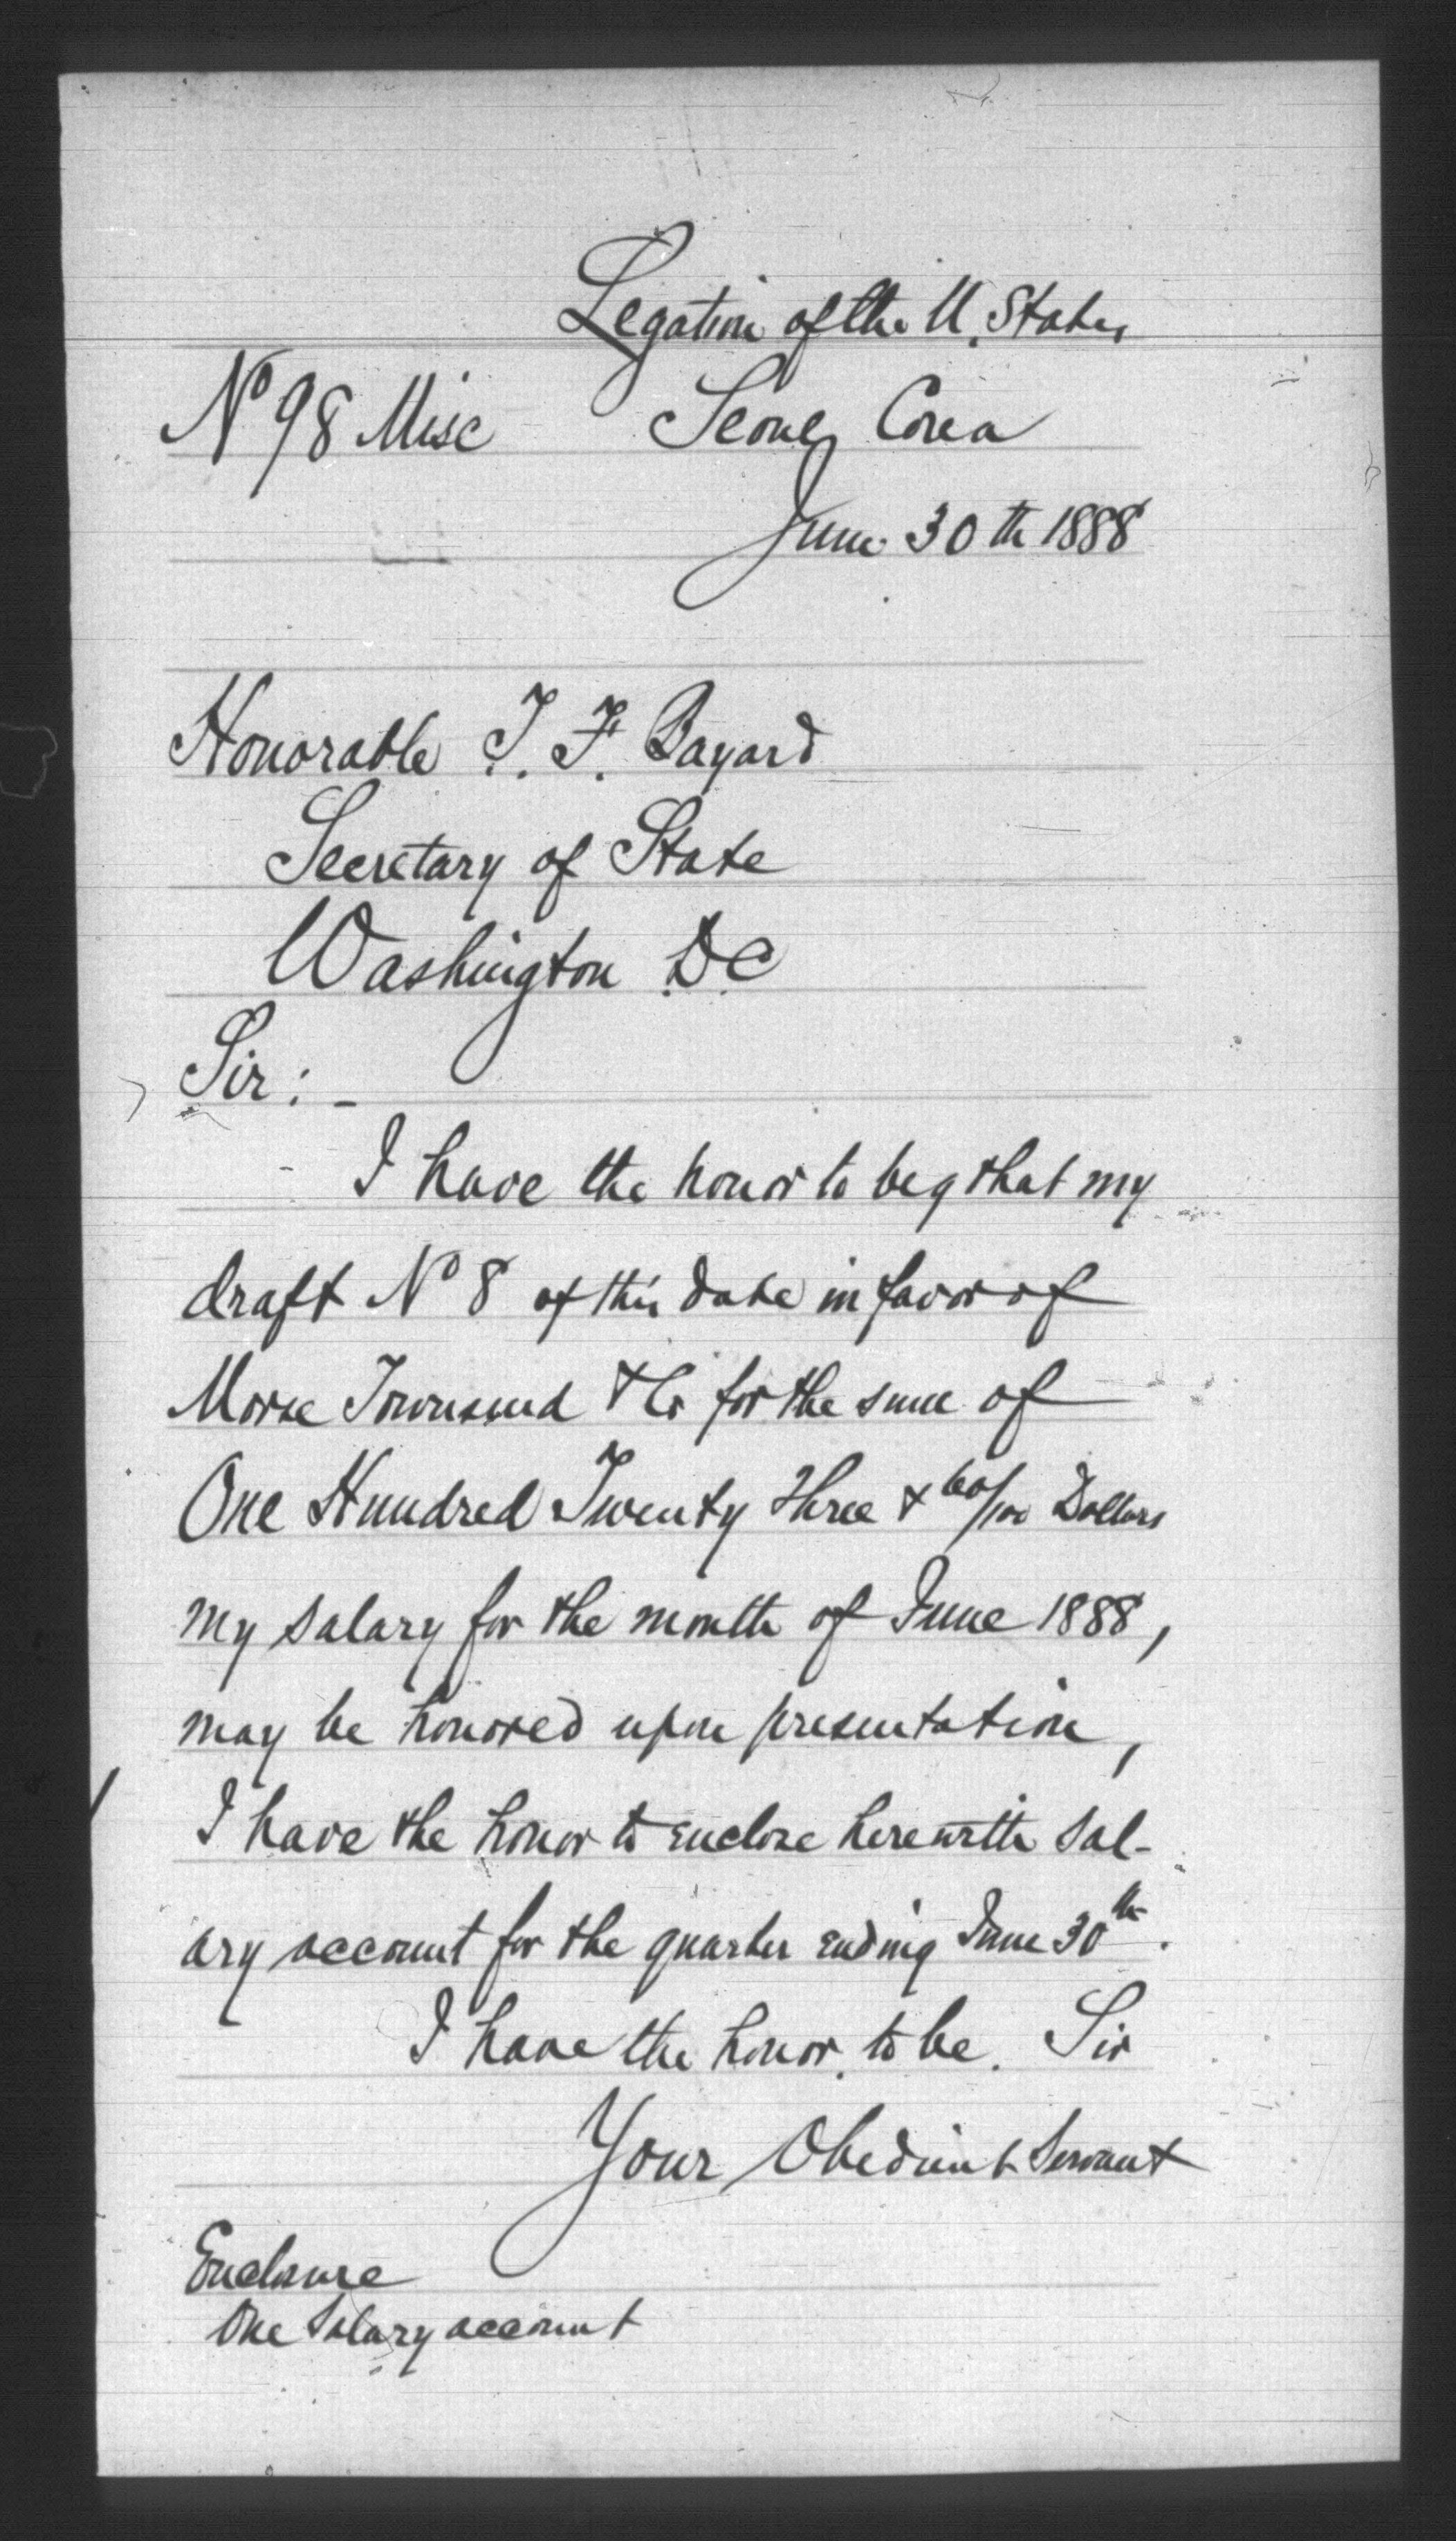 Legation of the U. States
Nº 98 Misc Seoul, Corea
June 30th 1888
Honorable T. F. Bayard
Secretary of State
Washington D.C.
Sir:-
I have the honor to beg that my
draft Nº 8 of this date in favor of
Morse Townsend & Co for the sum of
One Hundred Twenty Three & 60/100 Dollars
my salary for the month of June 1888,
may be honored upon presentation,
I have the honor to enclose herewith sal-
ary account for the quarter ending June 30th.
I have the honor, to be. Sir
Your Obedient Servant
Enclosure
One Salary account